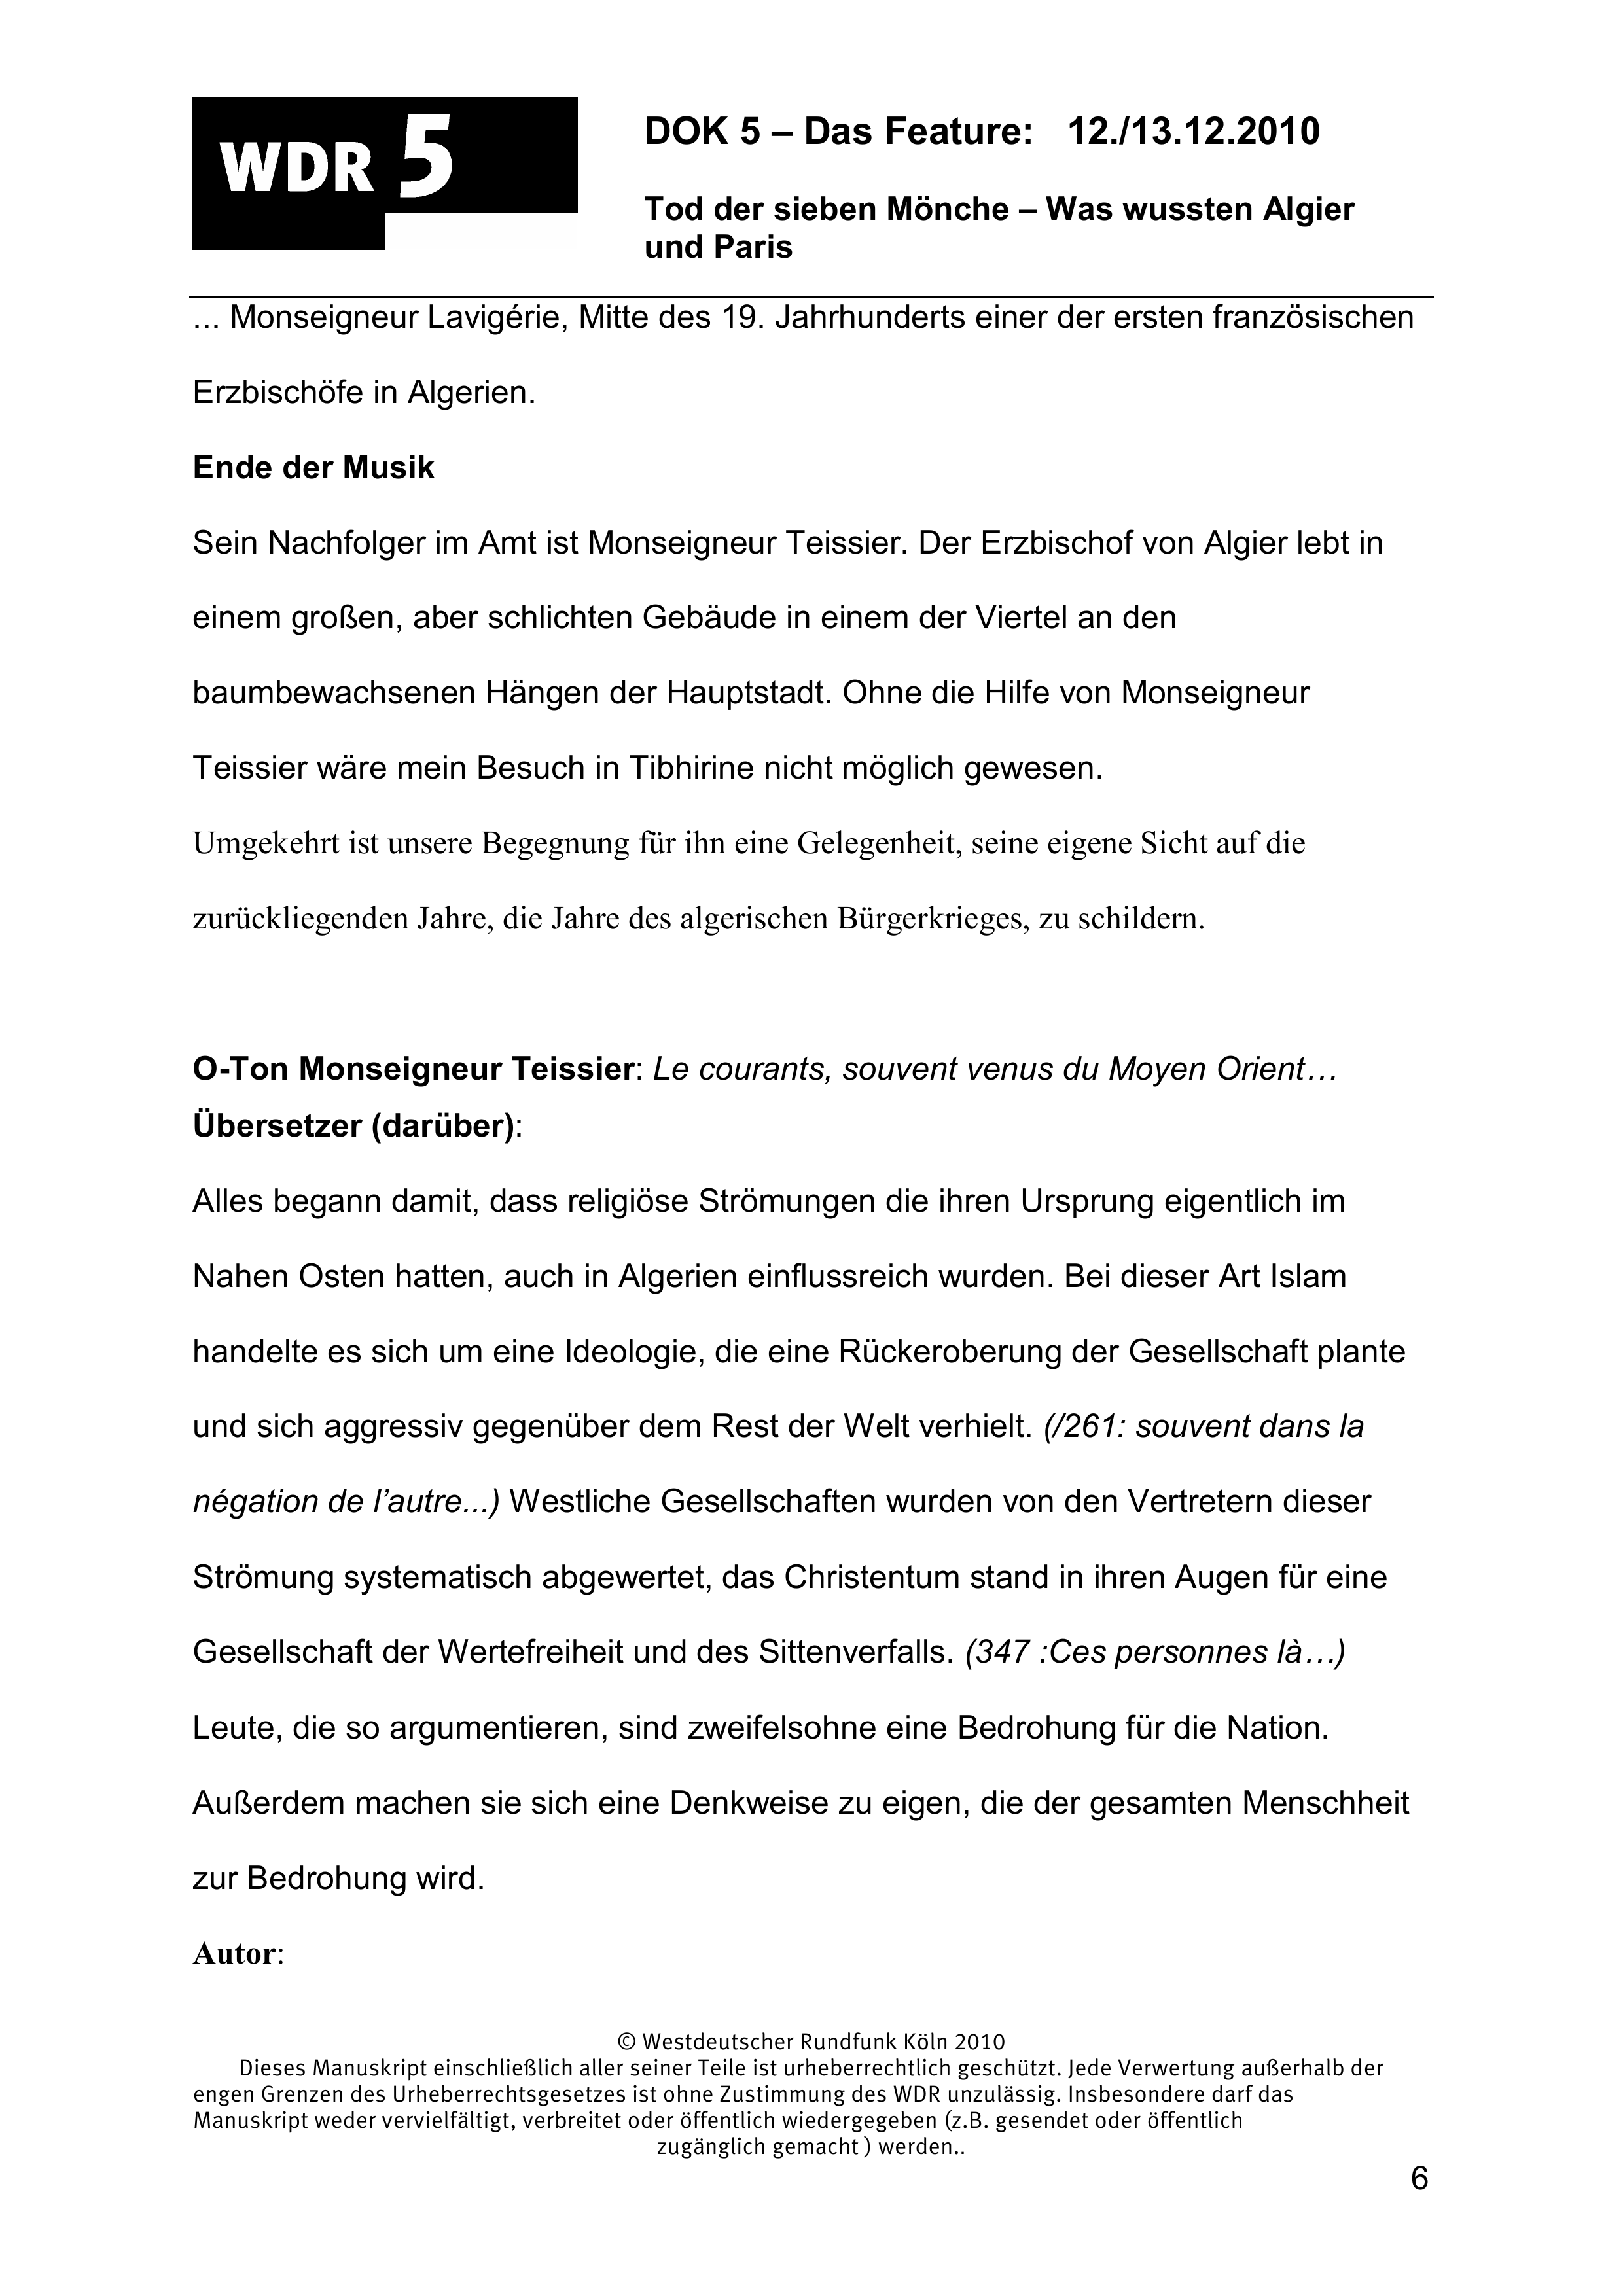 WDR 5
DOK 5 – Das Feature: 12./13.12.2010
Tod der sieben Mönche – Was wussten Algier
und Paris
... Monseigneur Lavigérie, Mitte des 19. Jahrhunderts einer der ersten französischen
Erzbischöfe in Algerien.
Ende der Musik
Sein Nachfolger im Amt ist Monseigneur Teissier. Der Erzbischof von Algier lebt in
einem großen, aber schlichten Gebäude in einem der Viertel an den
baumbewachsenen Hängen der Hauptstadt. Ohne die Hilfe von Monseigneur
Teissier wäre mein Besuch in Tibhirine nicht möglich gewesen.
Umgekehrt ist unsere Begegnung für ihn eine Gelegenheit, seine eigene Sicht auf die
zurückliegenden Jahre, die Jahre des algerischen Bürgerkrieges, zu schildern.
O-Ton Monseigneur Teissier: Le courants, souvent venus du Moyen Orient…
Übersetzer (darüber):
Alles begann damit, dass religiöse Strömungen die ihren Ursprung eigentlich im
Nahen Osten hatten, auch in Algerien einflussreich wurden. Bei dieser Art Islam
handelte es sich um eine Ideologie, die eine Rückeroberung der Gesellschaft plante
und sich aggressiv gegenüber dem Rest der Welt verhielt. (/261: souvent dans la
négation de l’autre...) Westliche Gesellschaften wurden von den Vertretern dieser
Strömung systematisch abgewertet, das Christentum stand in ihren Augen für eine
Gesellschaft der Wertefreiheit und des Sittenverfalls. (347 :Ces personnes là…)
Leute, die so argumentieren, sind zweifelsohne eine Bedrohung für die Nation.
Außerdem machen sie sich eine Denkweise zu eigen, die der gesamten Menschheit
zur Bedrohung wird.
Autor:
© Westdeutscher Rundfunk Köln 2010
Dieses Manuskript einschließlich aller seiner Teile ist urheberrechtlich geschützt. Jede Verwertung außerhalb der
engen Grenzen des Urheberrechtsgesetzes ist ohne Zustimmung des WDR unzulässig. Insbesondere darf das
Manuskript weder vervielfältigt, verbreitet oder öffentlich wiedergegeben (z.B. gesendet oder öffentlich
zugänglich gemacht ) werden..
6